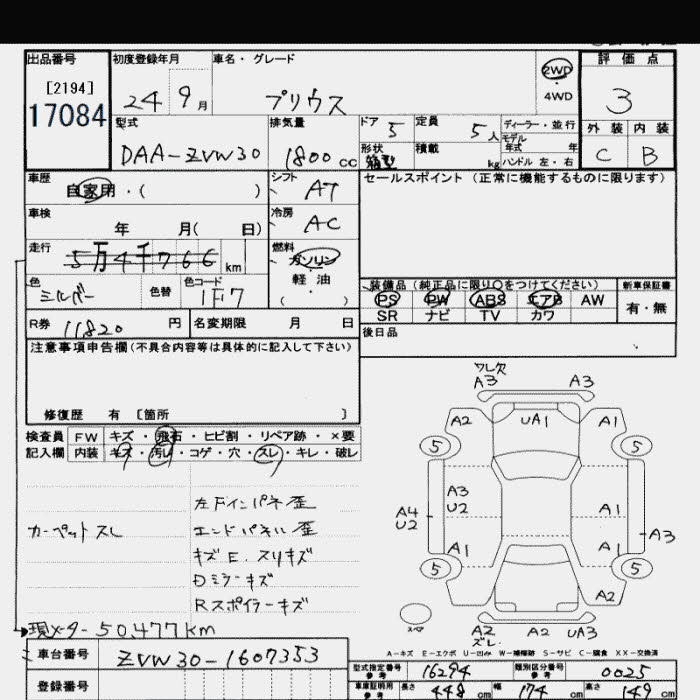 出品番号 初度登録年月 車名・グレード 評価点
[2194]
17084
24 9月 プリウス 2WD 3
4WD
型式 排気量 ドア 5 定員 5人 ディーラー・並行 外装 内装
モデル年式 年
DAA-ZVW30 1800cc 形状 箱型 積載 kg ハンドル 左・右 C B
車歴 シフト セールスポイント(正常に機能するものに限ります)
自家用・( ) AT
車検 冷房
年 月( 日) AC
走行 燃料
5万4千766km ガソリン
軽油
( )
色 色替 色コード 装備品(純正品に限り〇をつけてください) 新車保証書
シルバー 1F7 PS PW ABS エアB AW 有・無
SR ナビ TV カワ
R券 11820円 名変期限 月 日 後日品
注意事項申告欄(不具合内容等は具体的に記入して下さい)
ワレ欠
A3 A3
修復歴 有 [箇所 ]
A2 UA1 A1
検査員 FW キズ・飛石・ヒビ割・リペア跡・×要
記入欄 内装 キズ・汚レ・コゲ・穴・スレ・キレ・破レ
5 5
A3
U2
左Fインパネ歪
A4
U2
A1
カーペットスレ エンドパネル歪
A3
A1 A1
キズE.スリキズ
5 5
Dミラーキズ
A2
Rスポイラーキズ
スペ
現メーター50,477km
A2 A2 UA3
ズレ
A-キズ E-エクボ U-凹み W-補修跡 S-サビ C-腐食 XX-交換済
車台番号 ZVW30-1607353
型式指定番号 参考 16294 類別区分番号 参考 0025
登録番号
車庫証明用 参考 長さ 448cm 幅 174cm 高さ 149cm